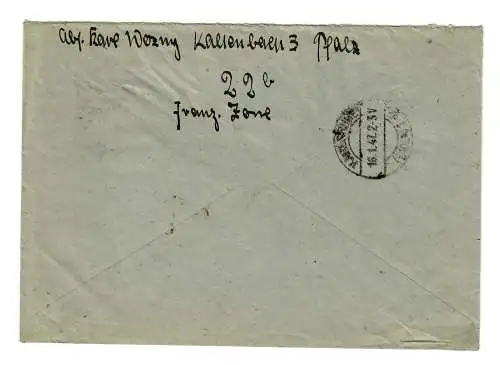 Abs. Karl Wozny Kaltenbach 3 Pfalz
22b
Franz. Zone
16.1.47.2-3V